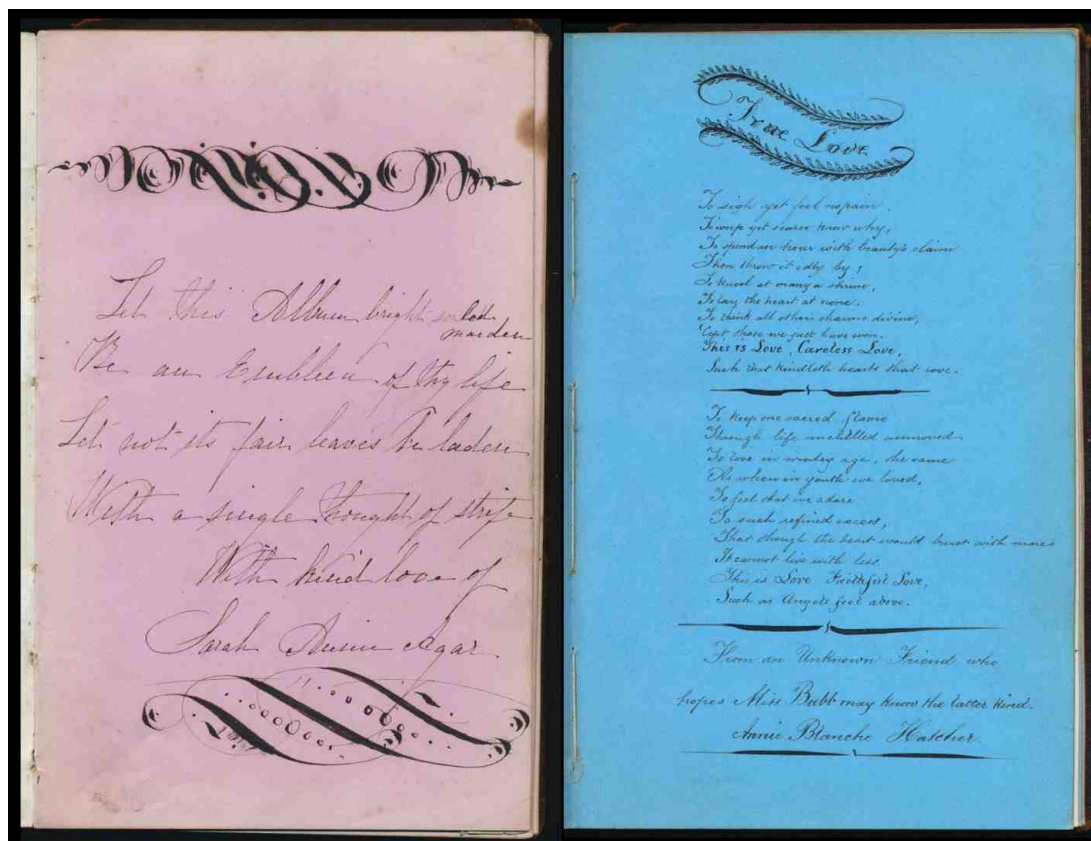 Let this Album bright
maiden
Be an Emblem of thy life
Let not its fair leaves be laden
With a single thought of strife
With kind love of
Sarah Annie Agar
True Love
To sigh yet feel no pain.
To weep yet scarce know why,
To spend an hour with beauty's claim
Then throw it idly by;
To kneel at many a shrine,
To lay the heart at none.
To think all other charms divine,
'Cept those we just have won.
This is Love, Careless Love,
Such that kindleth hearts that rove.
To keep one sacred flame
Through life unchilled unmoved
To love in wintry age, the same
As when in youth we loved,
To feel that we adore
To such refined excess,
That though the heart would burst with more
It cannot live with less
This is Love Faithful Love,
Such as Angels feel above.
From an Unknown Friend who
hopes Miss Babb may know the latter kind.
Annie Blanche Hatcher